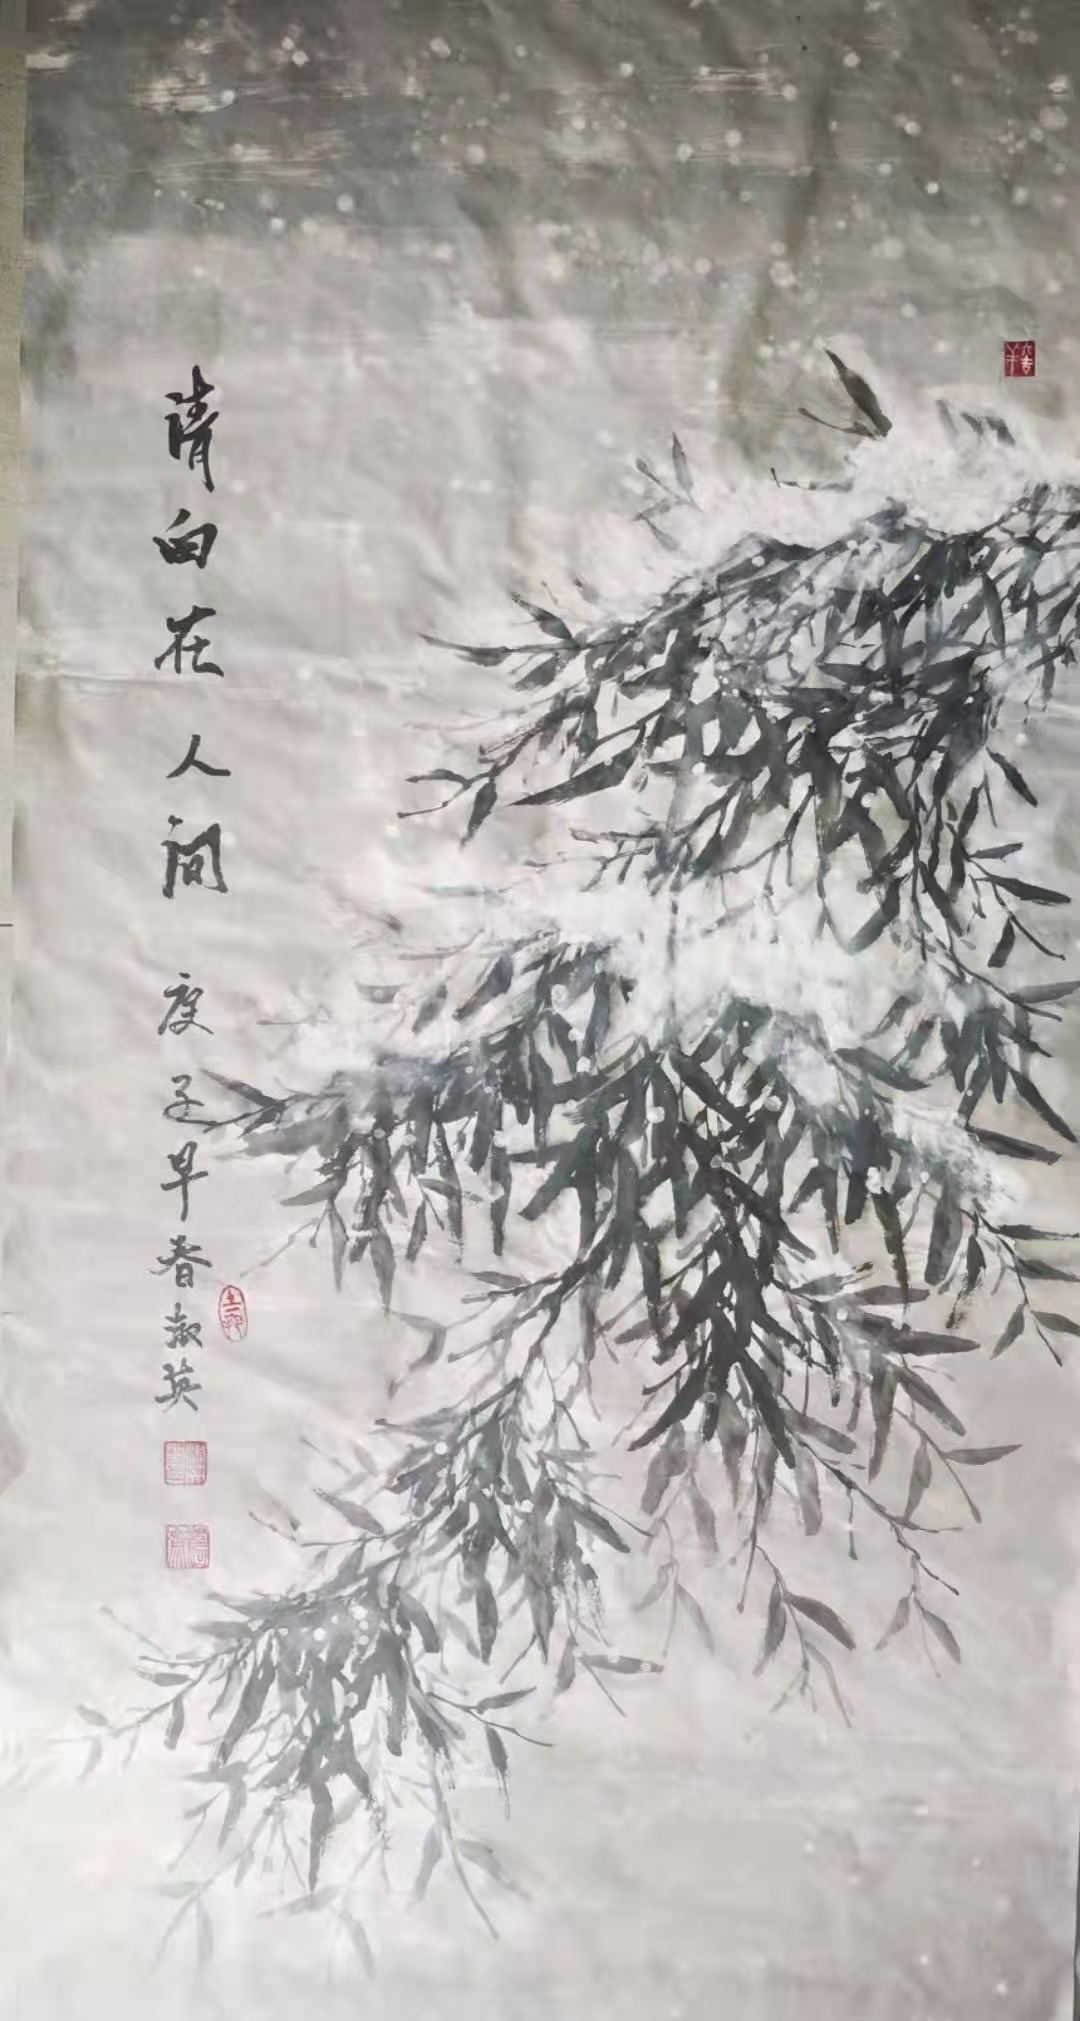 清白在人间 庚子早春淑英